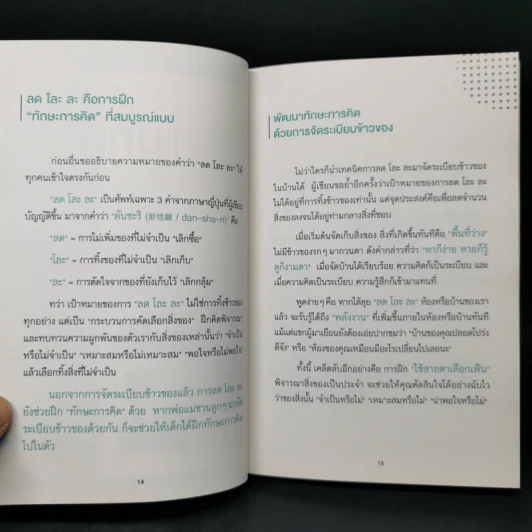 ลด โละ ละ คือการฝึก
"ทักษะการคิด" ที่สมบูรณ์แบบ
ก่อนอื่นขออธิบายความหมายของคำว่า "ลด โละ ละ" ให้
ทุกคนเข้าใจตรงกันก่อน
"ลด โละ ละ" เป็นศัพท์เฉพาะ 3 คำจากภาษาญี่ปุ่นที่ผู้เขียน
บัญญัติขึ้น มาจากคำว่า "ดันชะริ (断捨離 / dan-sha-ri)" คือ
"ลด" = การไม่เพิ่มของที่ไม่จำเป็น "เลิกซื้อ"
"โละ" = การทิ้งของที่ไม่จำเป็น "เลิกเก็บ"
"ละ" = การตัดใจจากของที่ยังเก็บไว้ "เลิกกลุ้ม"
ทว่า เป้าหมายของการ "ลด โละ ละ" ไม่ใช่การทิ้งข้าวของ
ทุกอย่าง แต่เป็น "กระบวนการคัดเลือกสิ่งของ" ฝึกคิดพิจารณา
และทบทวนความผูกพันของตัวเรากับสิ่งของเหล่านั้นว่า "จำเป็น
หรือไม่จำเป็น" "เหมาะสมหรือไม่เหมาะสม" "พอใจหรือไม่พอใจ"
แล้วเลือกทิ้งสิ่งที่ไม่จำเป็น
นอกจากการจัดระเบียบข้าวของแล้ว การลด โละ ละ
ยังช่วยฝึก "ทักษะการคิด" ด้วย หากพ่อแม่ชวนลูกๆ มาจัด
ระเบียบข้าวของด้วยกัน ก็จะช่วยให้เด็กได้ฝึกทักษะการคิด
ไปในตัว
14
พัฒนาทักษะการคิด
ด้วยการจัดระเบียบข้าวของ
ไม่ว่าใครก็นำเทคนิคการลด โละ ละมาจัดระเบียบข้าวของ
ในบ้านได้ ผู้เขียนขอย้ำอีกครั้งว่าเป้าหมายของการลด โละ ละ
ไม่ได้อยู่ที่การทิ้งข้าวของเท่านั้น แต่จุดประสงค์คือเพื่อลดจำนวน
สิ่งของลงจนได้อยู่ท่ามกลางสิ่งที่ชอบ
เมื่อเริ่มต้นจัดเก็บสิ่งของ สิ่งที่เกิดขึ้นทันทีคือ "พื้นที่ว่าง"
ไม่มีข้าวของรกๆ มากวนตา ดังคำกล่าวที่ว่า "หาก็ง่าย หายก็รู้
ดูก็งามตา" เมื่อจัดบ้านได้เรียบร้อย ความคิดก็เป็นระเบียบ และ
เมื่อความคิดเป็นระเบียบ ความรู้สึกก็เข้ามาแทนที่
พูดง่ายๆ คือ หากได้ลุย "ลด โละ ละ" ห้องหรือบ้านของเรา
แล้ว จะรับรู้ได้ถึง "พลังงาน" ที่เพิ่มขึ้นภายในห้องหรือบ้านทันที
แม้แต่แขกผู้มาเยือนยังต้องเอ่ยปากชมว่า "บ้านของคุณปลอดโปร่ง
ดีจัง" หรือ "ห้องของคุณเหมือนมีอะไรเปลี่ยนไปเลยนะ"
ทั้งนี้ เคล็ดลับอีกอย่าง คือ การฝึก "ใช้สายตาเลือกเฟ้น"
พิจารณาสิ่งของเป็นประจำ จะช่วยให้คุณตัดสินใจได้อย่างฉับไว
ว่าของสิ่งนั้น "จำเป็นหรือไม่" "เหมาะสมหรือไม่" "น่าพอใจหรือไม่"
15